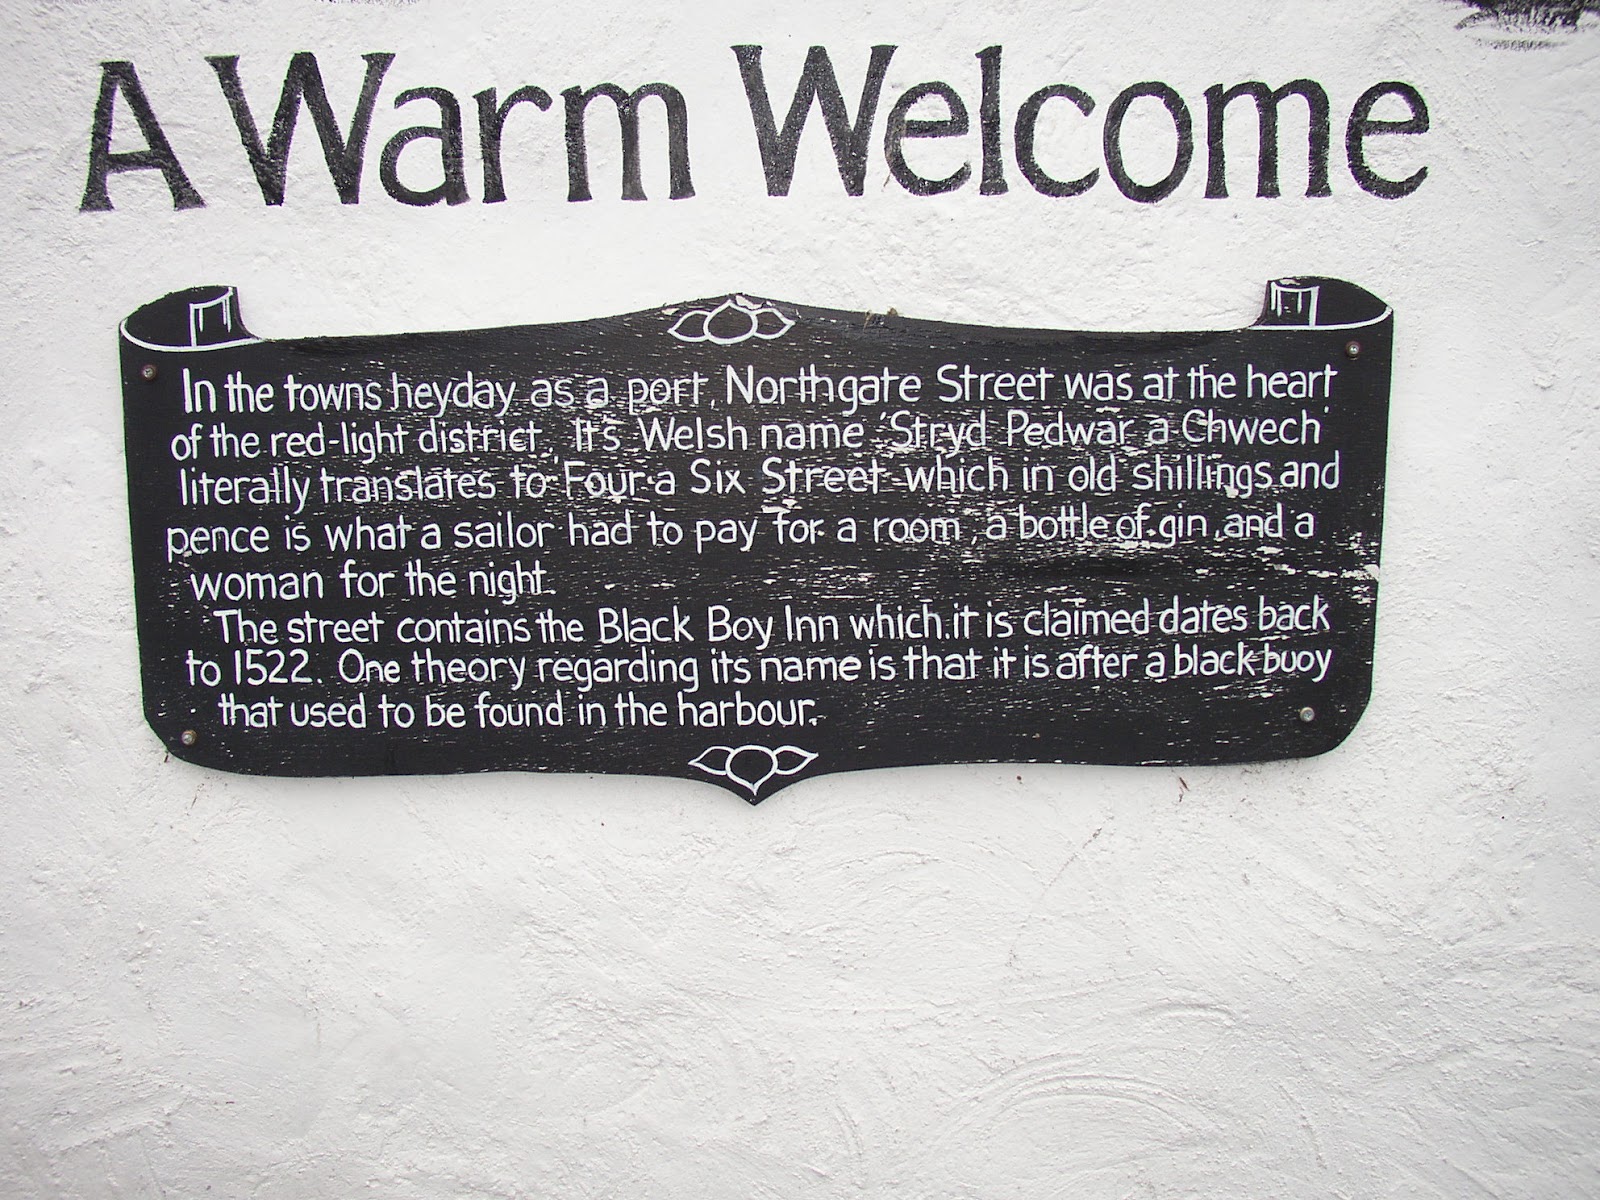 A Warm Welcome
In the towns heyday as a port, Northgate Street was at the heart
of the red-light district. It's Welsh name 'Stryd Pedwar a Chwech'
literally translates to 'Four a Six Street' which in old shillings and
pence is what a sailor had to pay for a room, a bottle of gin, and a
woman for the night.
The street contains the Black Boy Inn which it is claimed dates back
to 1522. One theory regarding its name is that it is after a black buoy
that used to be found in the harbour.